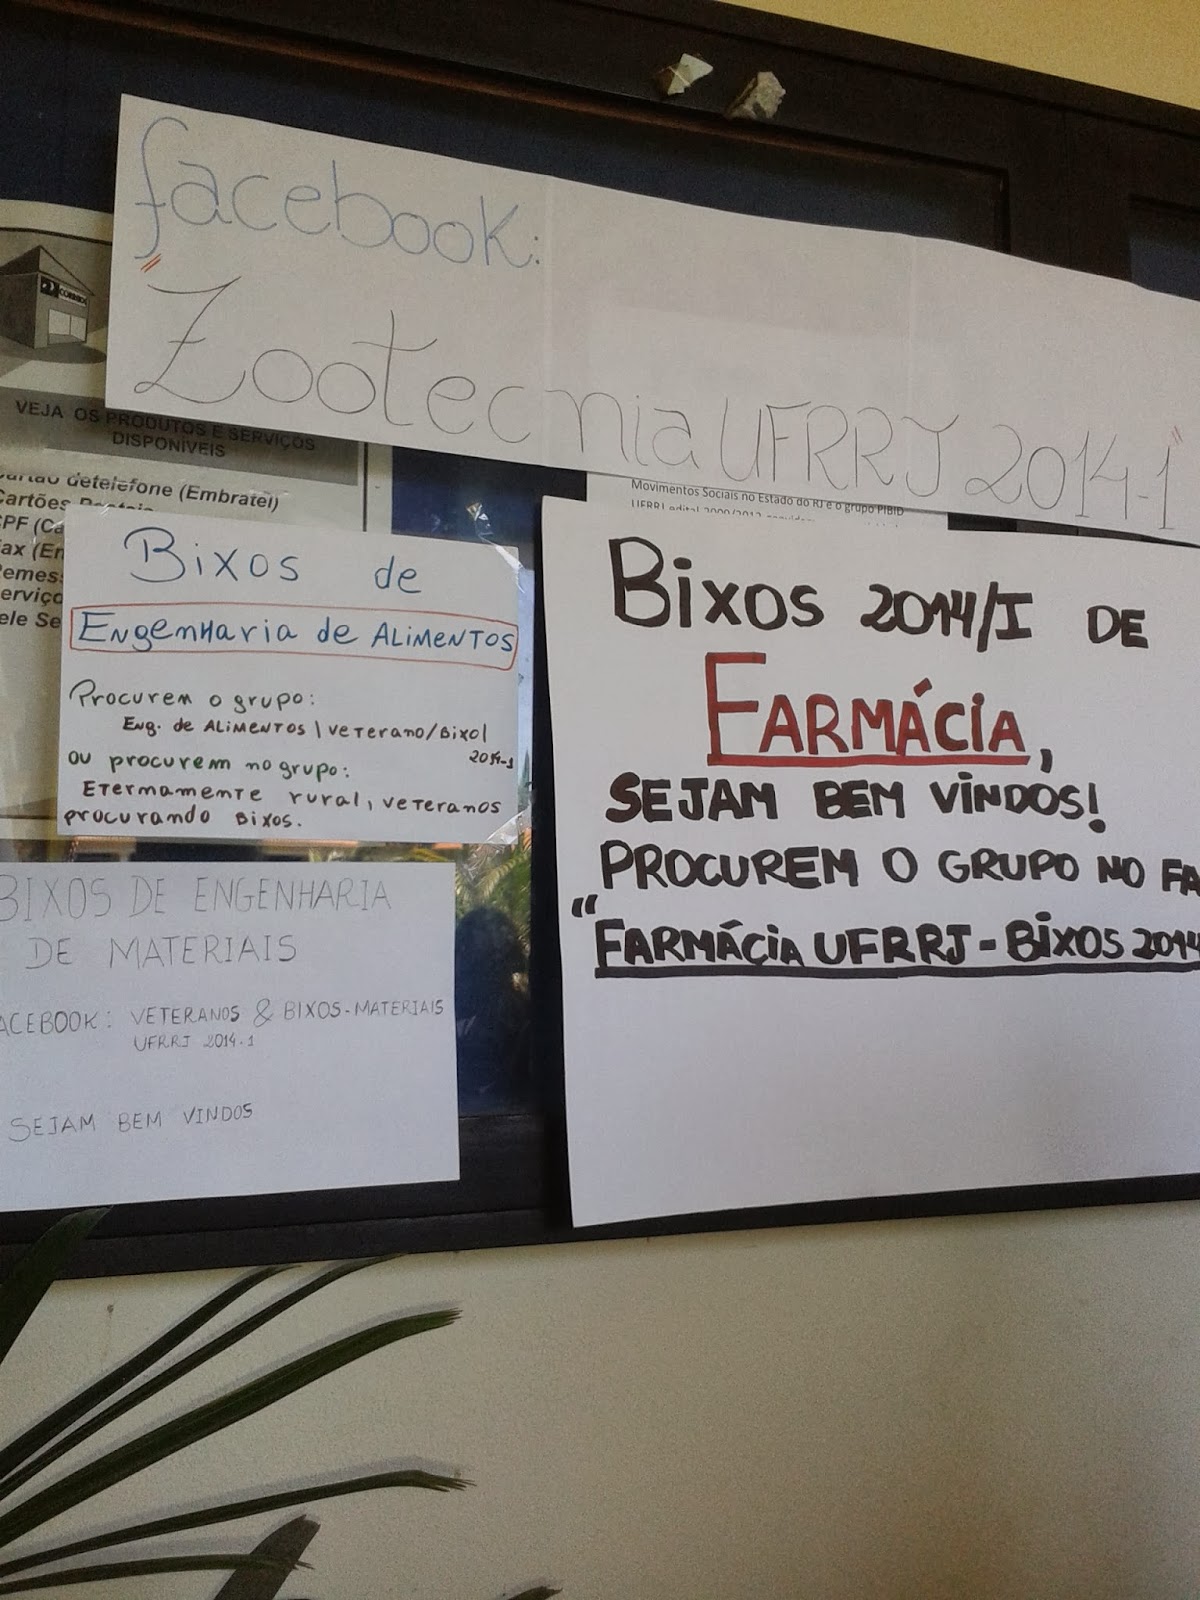 facebook:
"Zootecnia UFRRJ 2014-1"
CORREIOS
VEJA OS PRODUTOS E SERVIÇOS
DISPONÍVEIS
detelefone (Embratel)
Cartões
Movimentos Sociais no Estado do RJ e o grupo PIBID
Bixos de
Engenharia de Alimentos
Procurem o grupo:
Eng. de Alimentos | veterano/Bixo|
2014-1
ou procurem no grupo:
Etermamente rural, veteranos
procurando Bixos.
Bixos 2014/I DE
FARMÁCIA,
SEJAM BEM VINDOS!
PROCUREM O GRUPO NO FA
"FARMÁCIA UFRRJ - Bixos 2014
BIXOS DE ENGENHARIA
DE MATERIAIS
ACEBOOK: VETERANOS & BIXOS-MATERIAIS
UFRRJ 2014.1
SEJAM BEM VINDOS